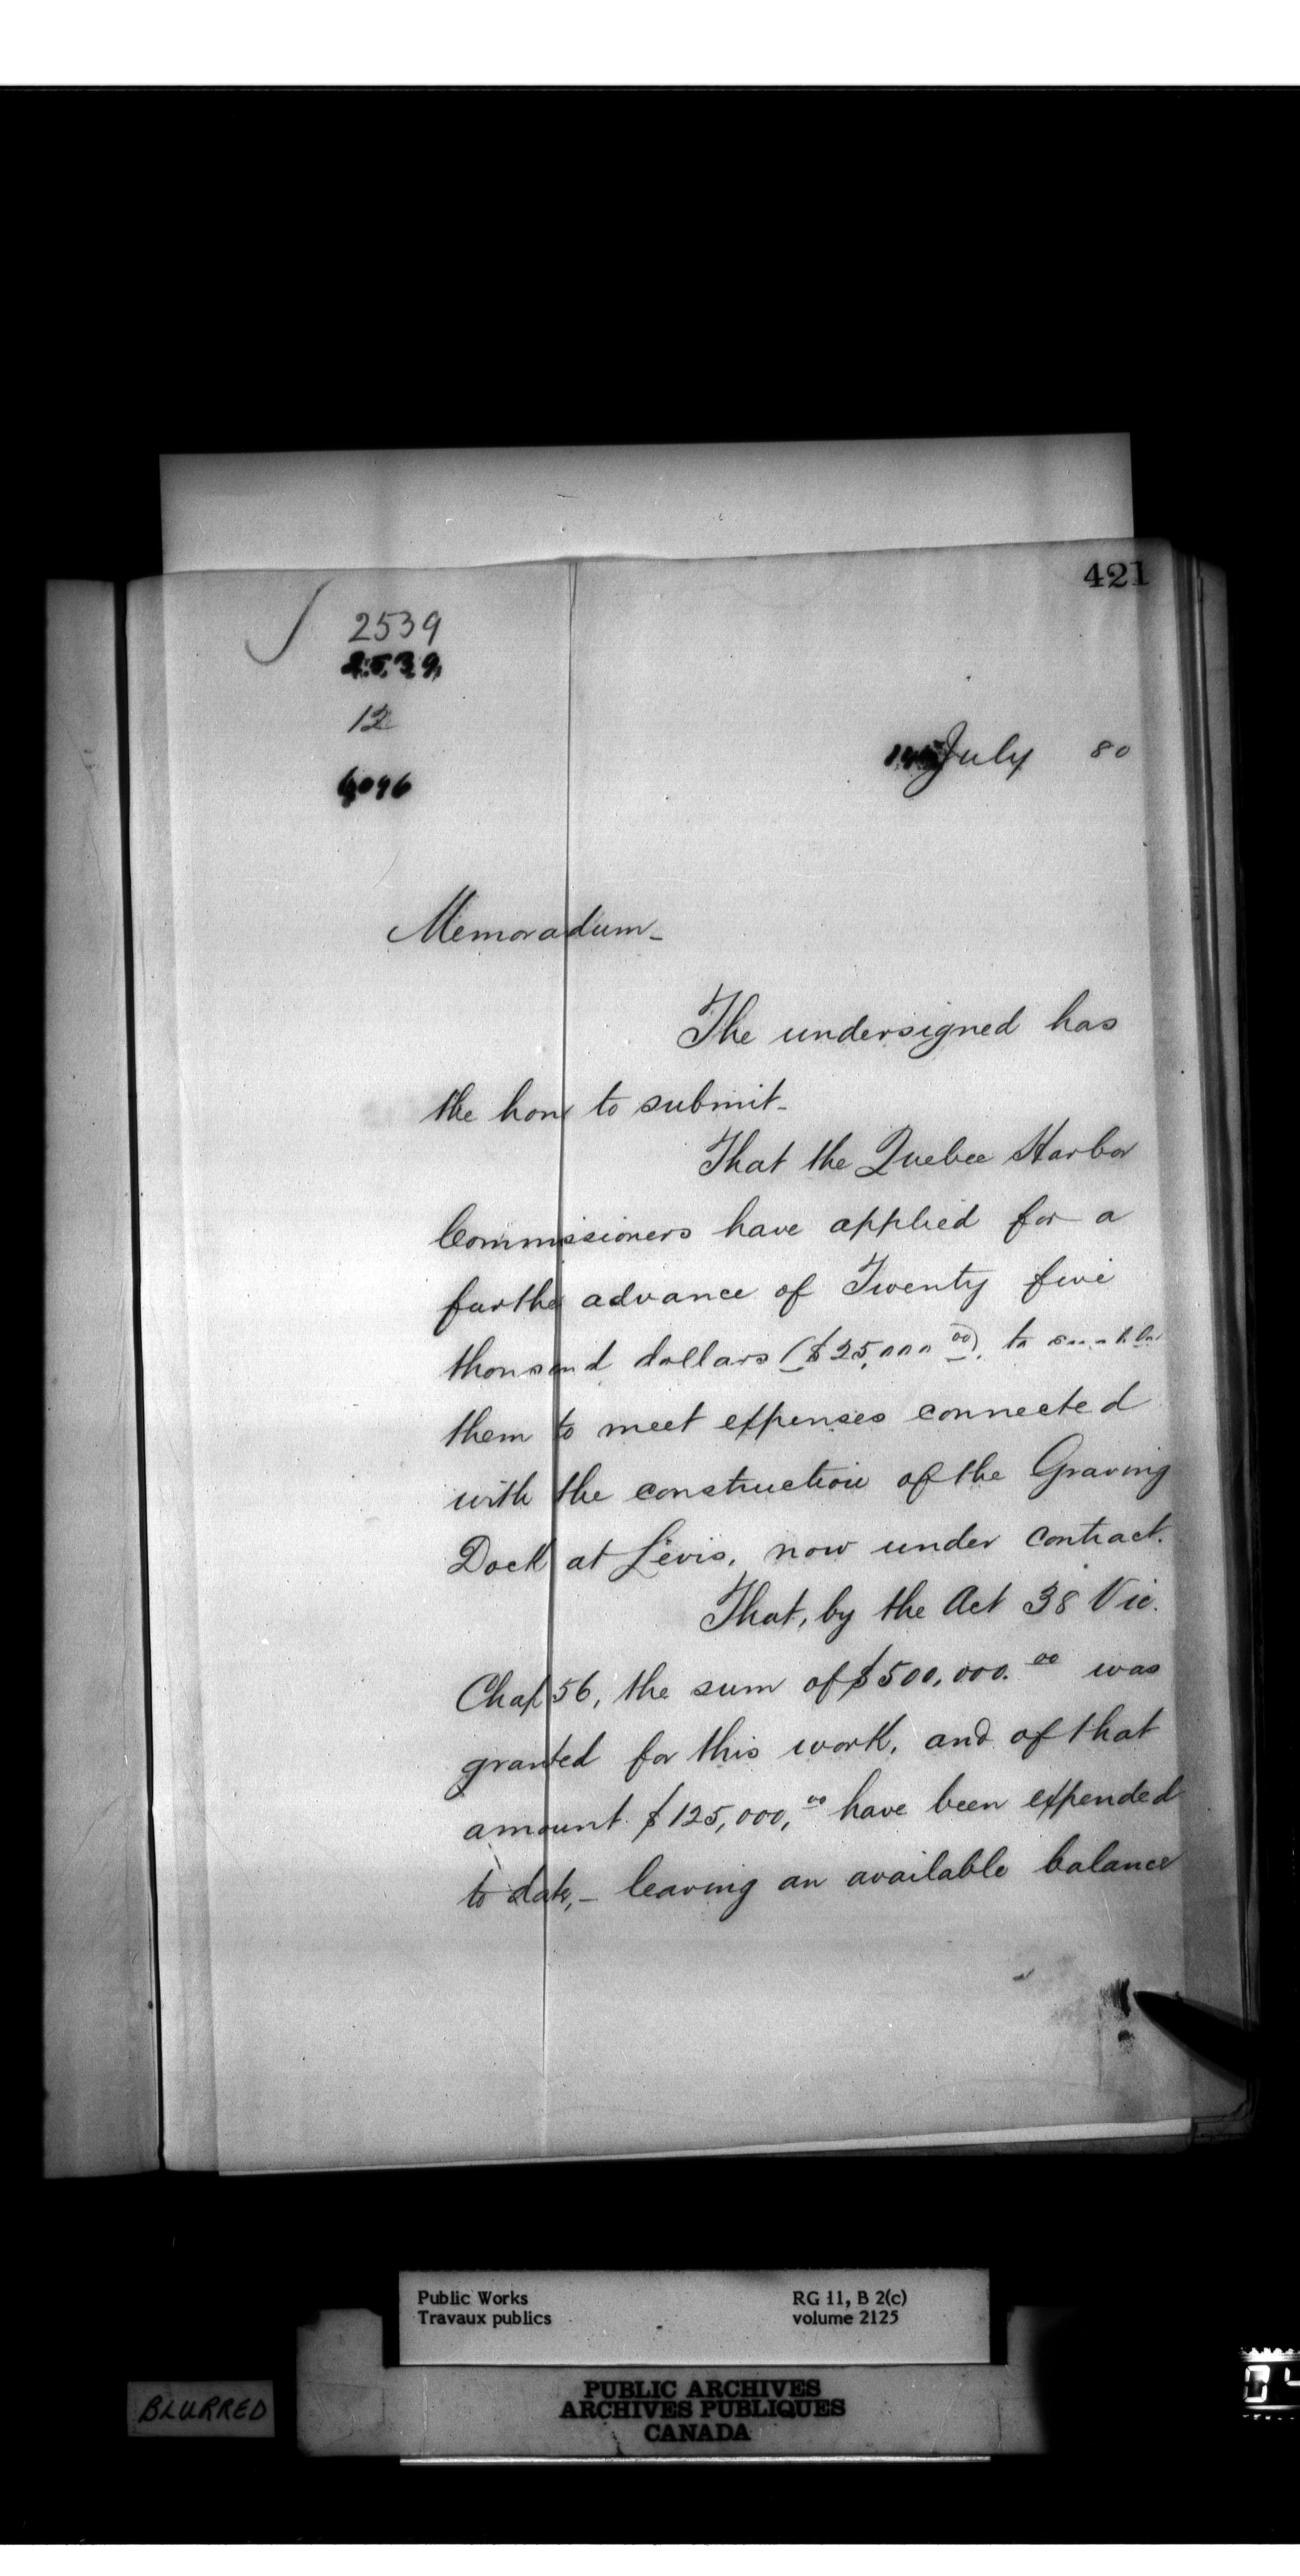 421
2539
2539
12
July 80
Memoradum_
The undersigned has
the honr to submit_
That the Quebec Harbor
Commissioners have applied for a
further advance of Twenty five
thousand dollars ($25,000 00), to enable
them to meet expenses connected
with the construction of the Graving
Dock at Lévis, now under contract.
That, by the Act 38 Vic.
Chap 56, the sum of $500,000.00 was
granted for this work, and of that
amount $125,000,00 have been expended
to date,_ leaving an available balance
Public Works RG 11, B 2(c)
Travaux publics volume 2125
BLURRED
PUBLIC ARCHIVES
ARCHIVES PUBLIQUES
CANADA